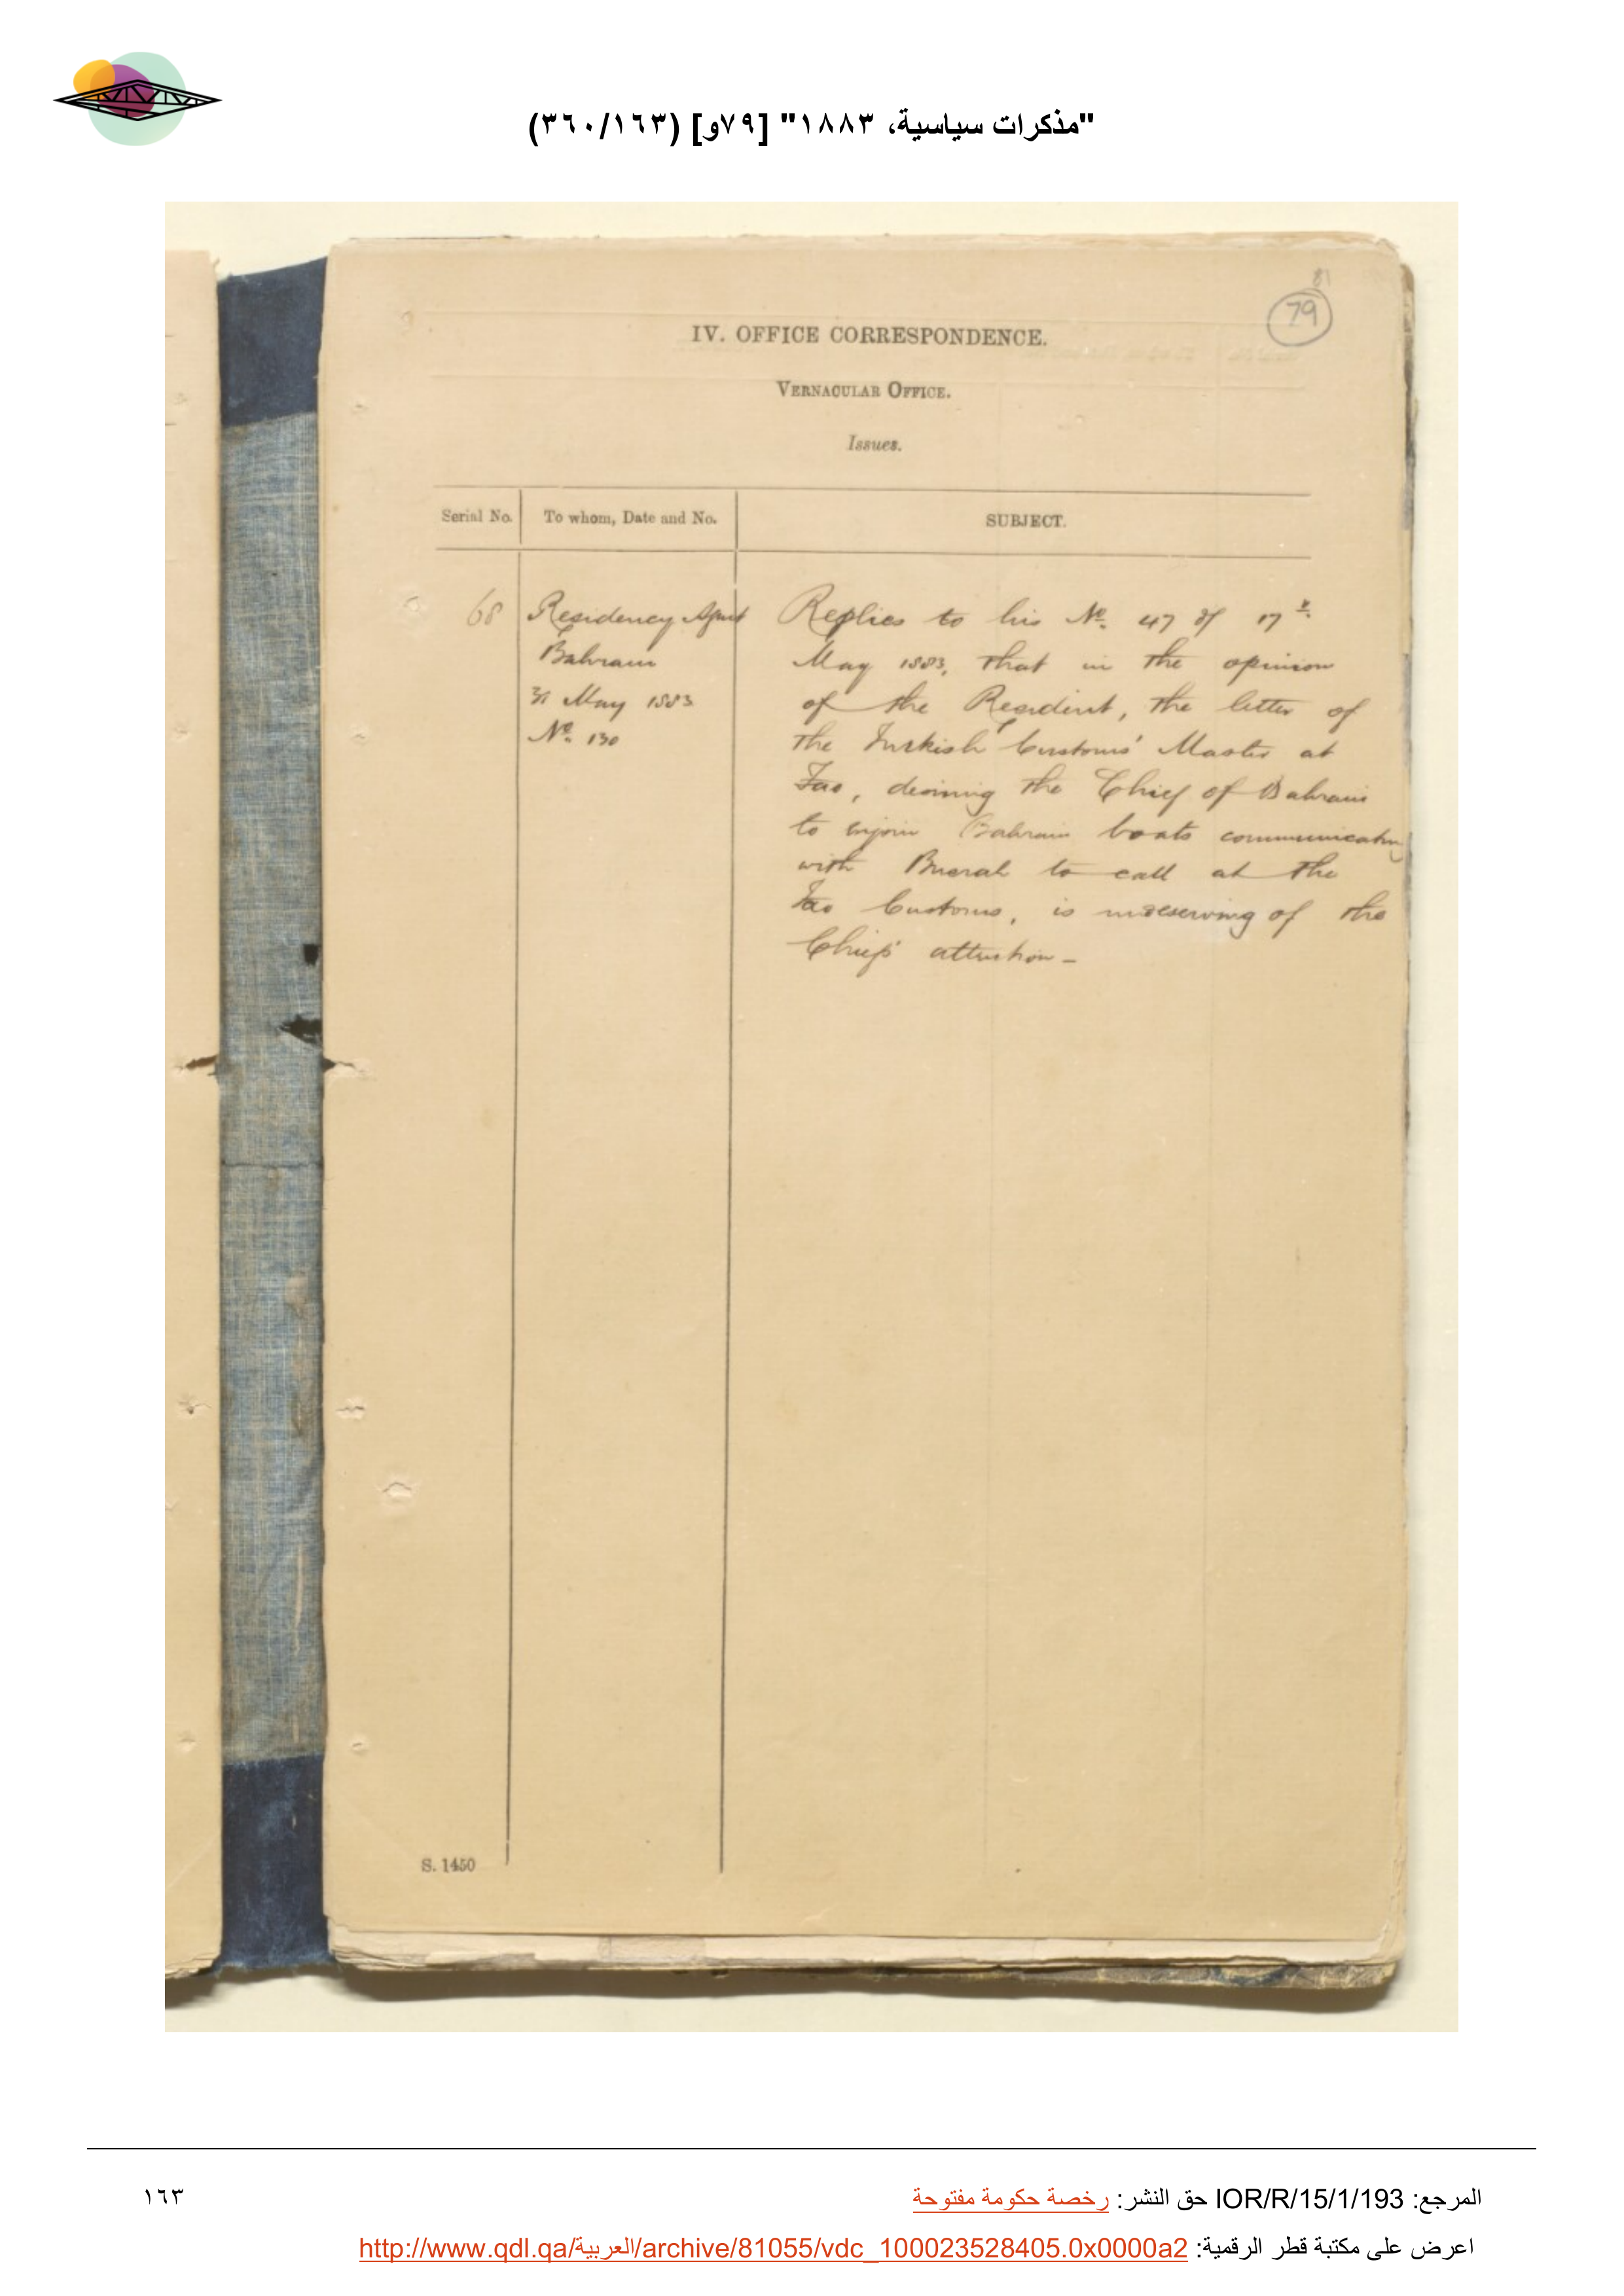 "مذكرات سياسية، ١٨٨٣" [٧٩و] (٣٦٠/١٦٣)
81
79
IV. OFFICE CORRESPONDENCE.
VERNACULAR OFFICE.
Issues.
Serial No. To whom, Date and No. SUBJECT.
68
Residency Agent
Bahrain
31 May 1883
No. 130
Replies to his No. 47 of 17th
May 1883, that in the opinion
of the Resident, the letter of
the Turkish Customs' Master at
Fao, desiring the Chief of Bahrain
to enjoin Bahrain boats communicating
with Busrah to call at the
Fao Customs, is undeserving of the
Chief's attention -
S. 1450
المرجع: IOR/R/15/1/193 حق النشر: رخصة حكومة مفتوحة
١٦٣
اعرض على مكتبة قطر الرقمية: http://www.qdl.qa/العربية/archive/81055/vdc_100023528405.0x0000a2